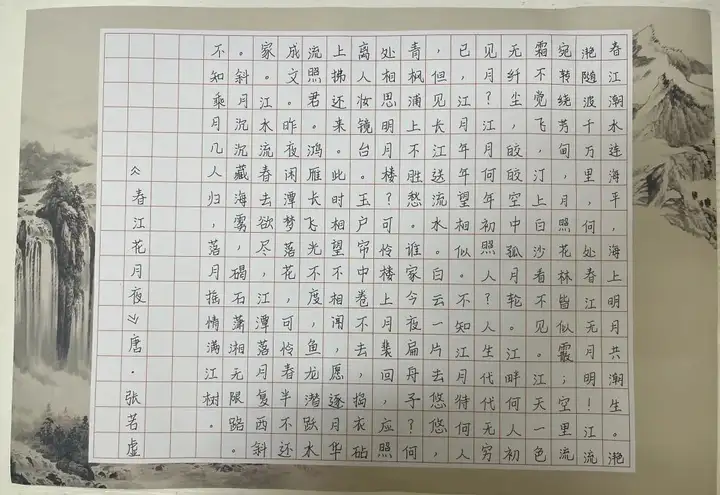 春江潮水连海平，海上明月共潮生。滟
滟随波千万里，何处春江无月明！江流
宛转绕芳甸，月照花林皆似霰；空里流
霜不觉飞，汀上白沙看不见。江天一色
无纤尘，皎皎空中孤月轮。江畔何人初
见月？江月何年初照人？人生代代无穷
已，江月年年望相似。不知江月待何人
，但见长江送流水。白云一片去悠悠，
青枫浦上不胜愁。谁家今夜扁舟子？何
处相思明月楼？可怜楼上月裴回，应照
离人妆镜台。玉户帘中卷不去，捣衣砧
上拂还来。此时相望不相闻，愿逐月华
流照君。鸿雁长飞光不度，鱼龙潜跃水
成文。昨夜闲潭梦落花，可怜春半不还
家。江水流春去欲尽，江潭落月复西斜
。斜月沉沉藏海雾，碣石潇湘无限路。
不知乘月几人归，落月摇情满江树。
《春江花月夜》唐·张若虚